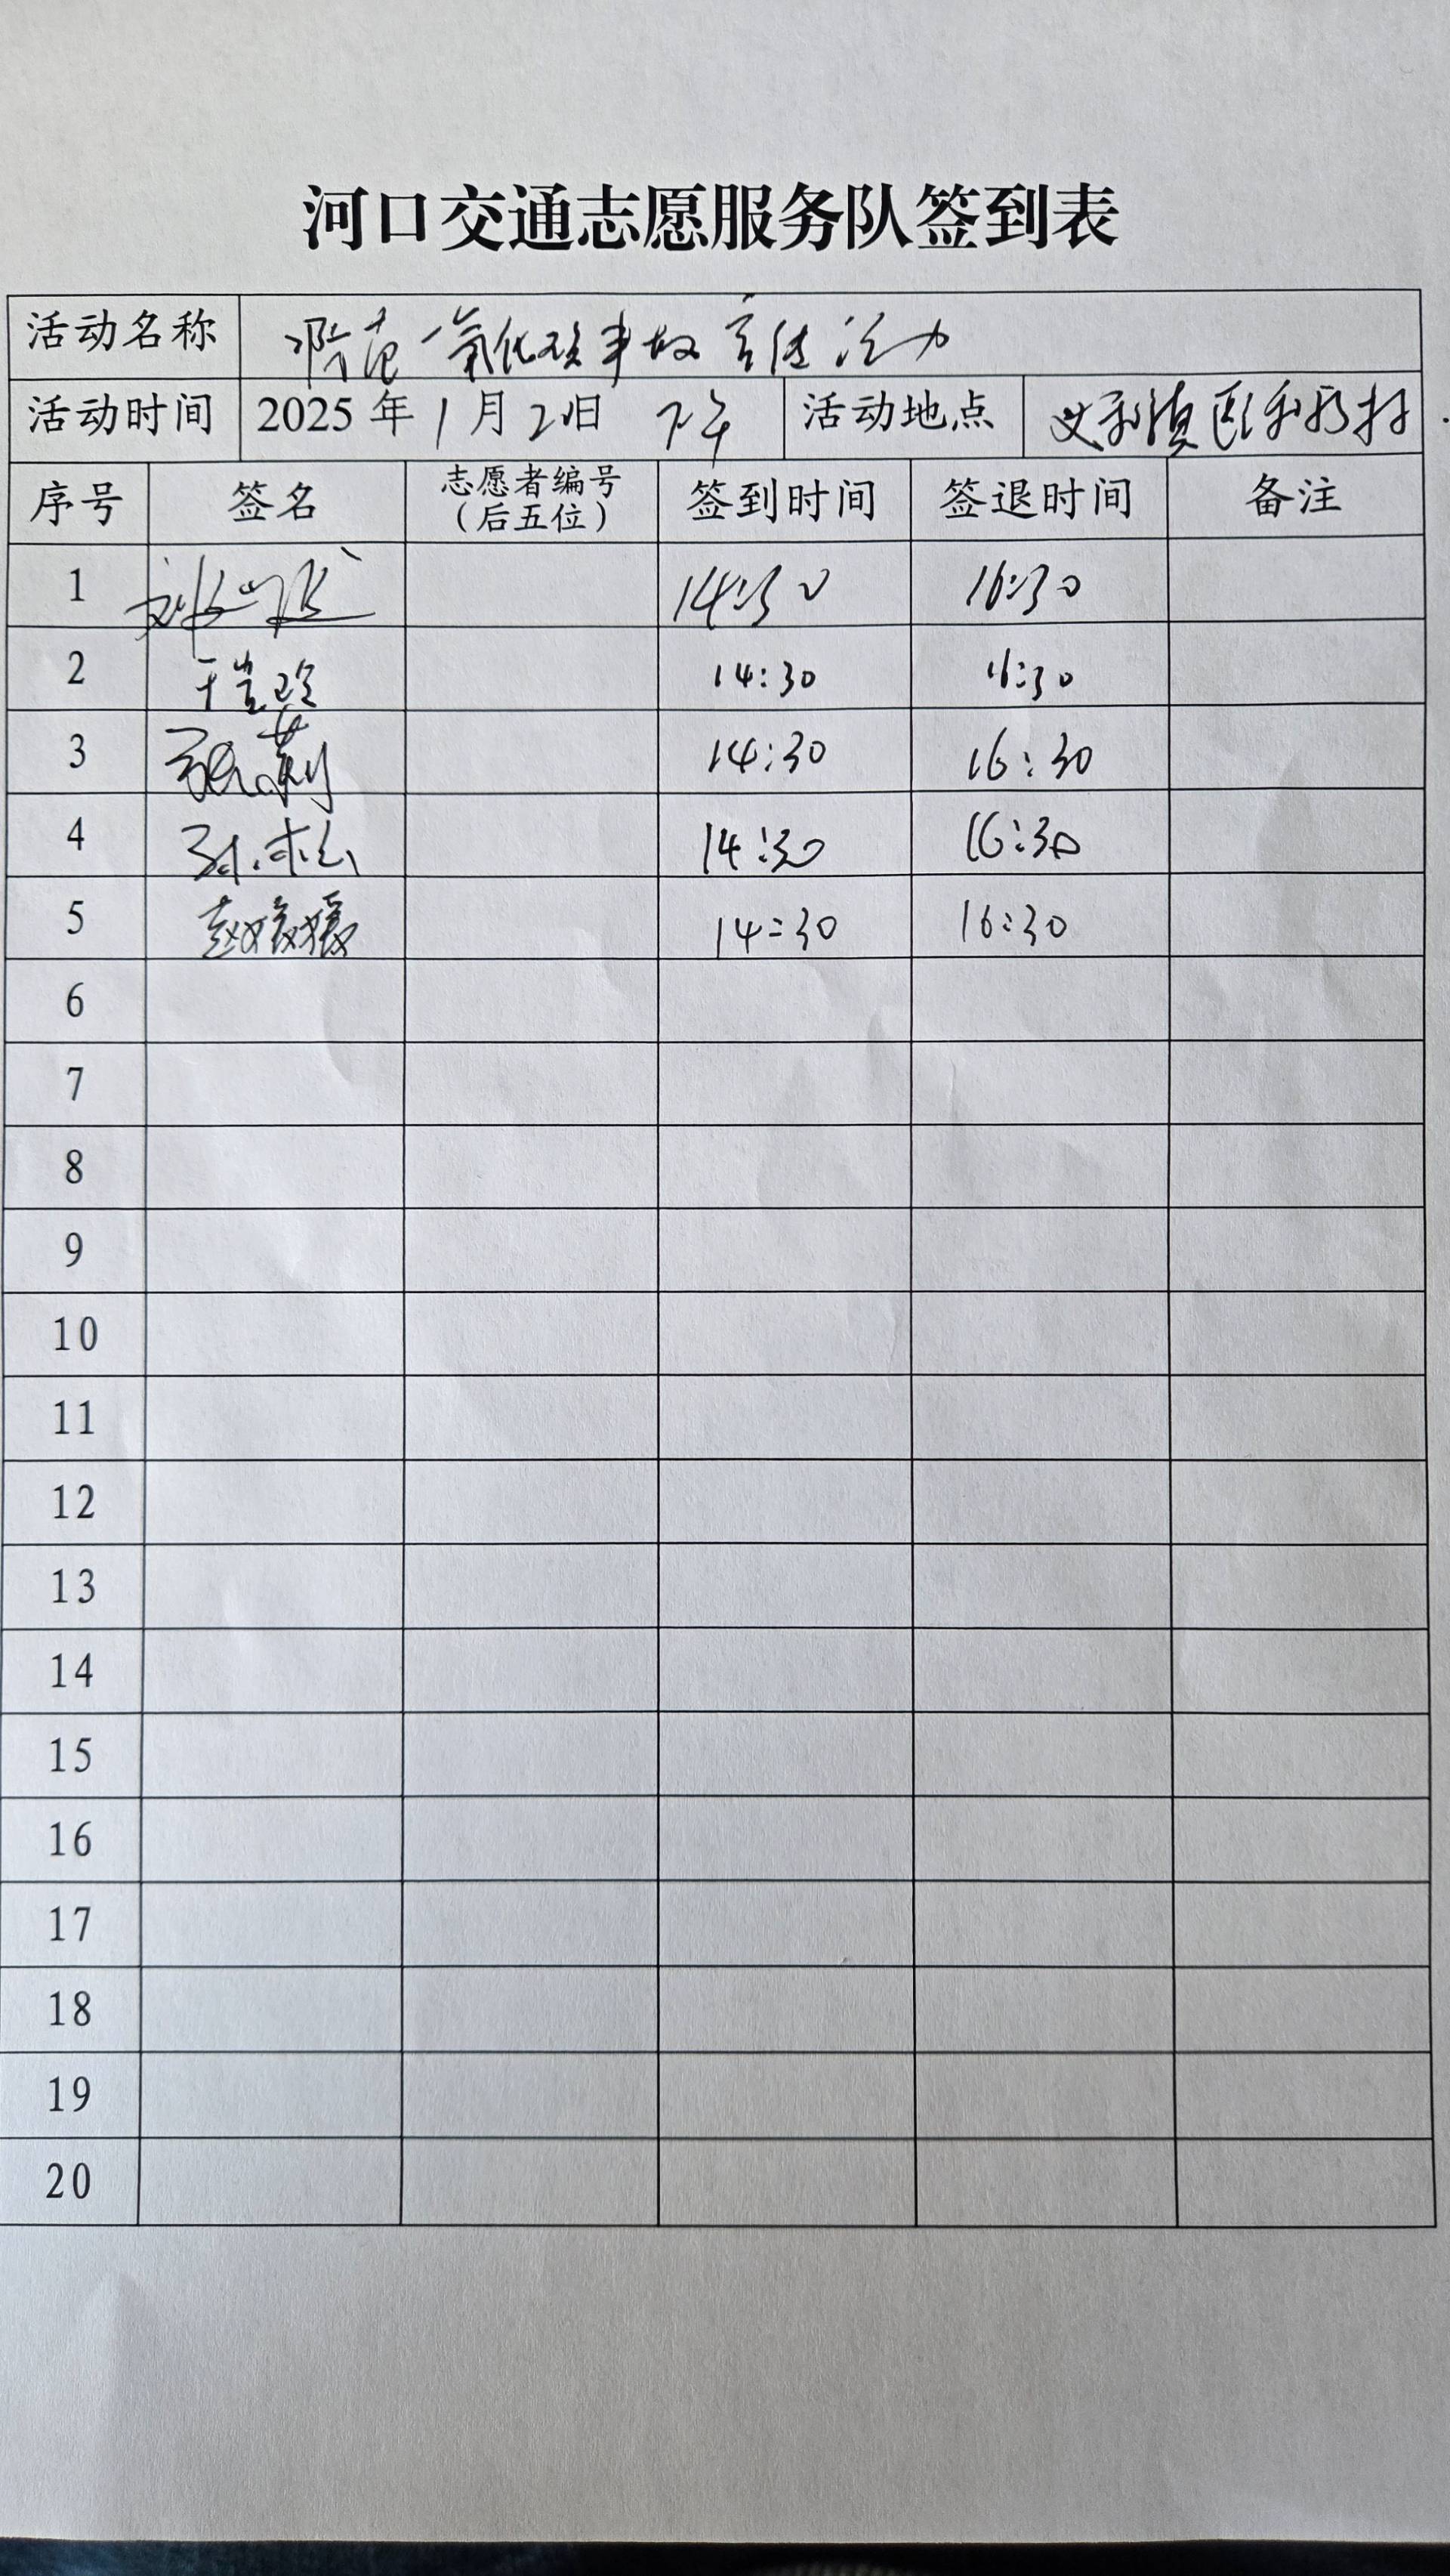 河口交通志愿服务队签到表
活动名称 防范一氧化碳事故宣传活动
活动时间 2025年1月2日 下午 活动地点 义和镇
序号 签名 志愿者编号（后五位） 签到时间 签退时间 备注
1 14:30 16:30
2 14:30 16:30
3 张莉 14:30 16:30
4 14:30 16:30
5 赵媛媛 14:30 16:30
6
7
8
9
10
11
12
13
14
15
16
17
18
19
20